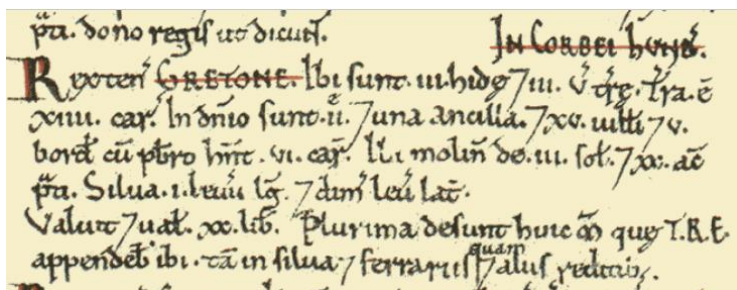 pͣti. dono regis ut dicunt̃. IN CORBEI HUND̃.
Rex ten̄ GRETONE. Ibi sunt .iii. hidę ⁊ iii. v̄ trę. Tr̄a. ē
xiiii. car̄. In dn̄io sunt .ii. ⁊ una ancilla. ⁊ xv. uilli ⁊ v.
bord̄ cū pb̄ro hn̄t .vi. car̄. Ibi molin̄ de .iii. sol̄. ⁊ xx. ac̄
pͣti. Silua .i. leuū lḡ. ⁊ dim̄ leū lat̄.
Valuit ⁊ ual̄. xx. lib̄. Plurima desunt huic m̄ quę T.R.E.
appendeb̄ ibi. tā in silua ⁊ ferrariis quam ⁊ aliis redditib;.